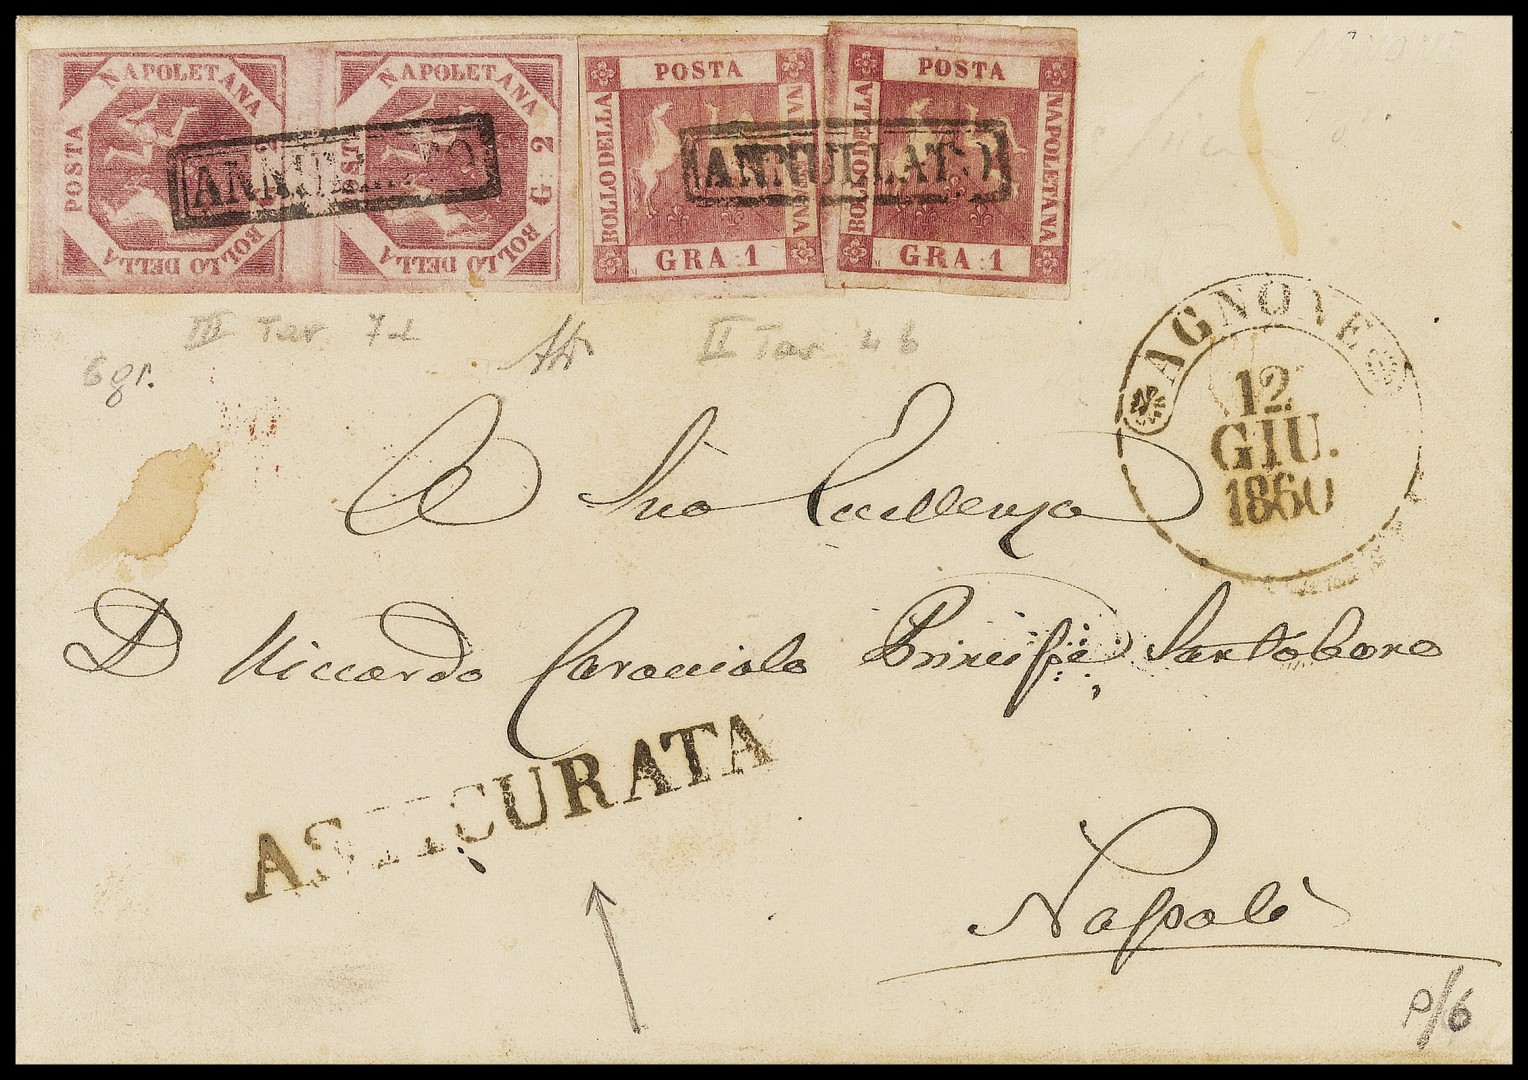 NAPOLETANA
G 2
BOLLO DELLA
POSTA
NAPOLETANA
G 2
BOLLO DELLA
POSTA
POSTA
BOLLO DELLA
NAPOLETANA
GRA 1
POSTA
BOLLO DELLA
NAPOLETANA
GRA 1
ANNULLATO
ANNULLATO
III Tav
II Tav
6 gr.
AGNONE
12
GIU.
1860
A Sua Eccellenza
D Riccardo Caracciolo Principe Santobono
ASSICURATA
Napoli
P/6